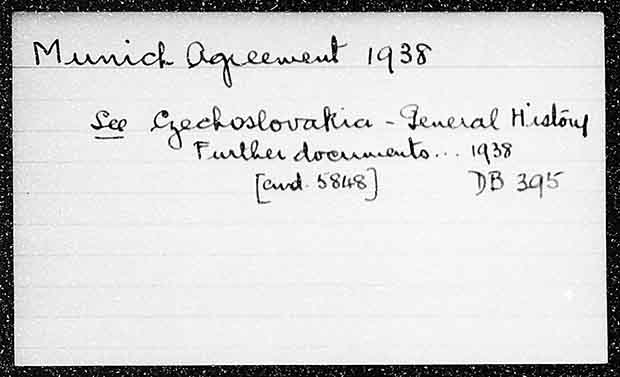 Munich Agreement 1938
See Czechoslovakia - General History
Further documents... 1938
[cmd. 5848] DB 395